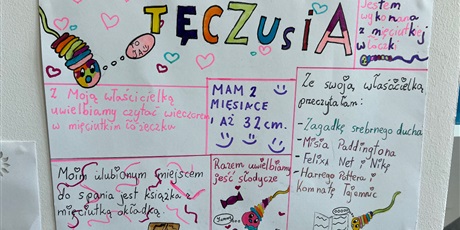 TĘCZUSIA
Jestem
wykonana
z mięciutkiej
włóczki
Z Moją właścicielką
uwielbiamy czytać wieczorem
w mięciutkim łóżeczku
MAM 2
MIESIĄCE
I AŻ 32 cm.
Ze swoją właścicielką
przeczytałam:
- Zagadkę srebrnego ducha
- Misia Paddingtona
- Felixa Net i Nikę
- Harrego Pottera i
komnatę Tajemnic
Moim ulubionym miejscem
do spania jest książka z
mięciutką okładką.
Razem uwielbiamy
jeść słodycze